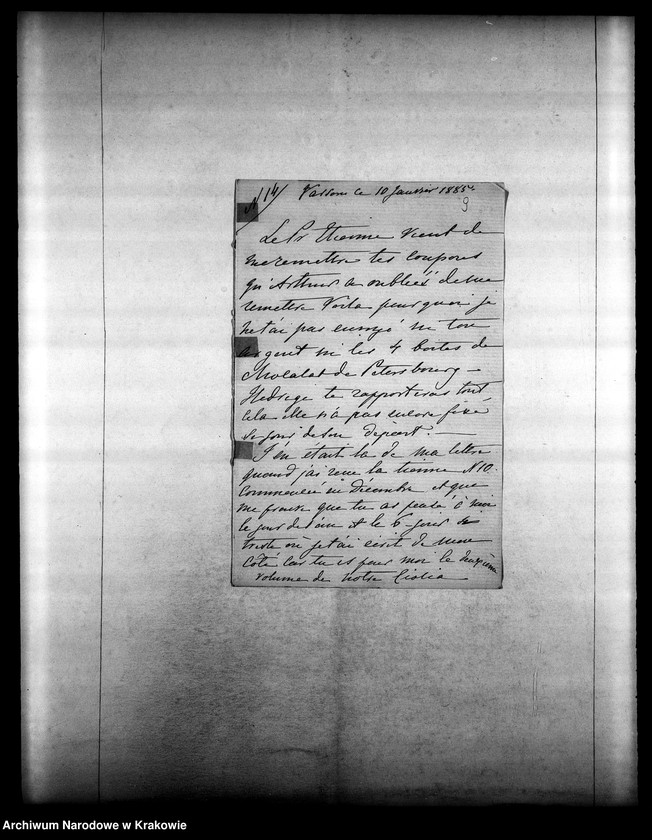 N 14/ Varsovie le 10 Janvier 1885.
9
Le Pr Etienne vient de
me remettre tes coupons
qu'Arthur a oubliés de me
remettre Voila pourquoi je
ne t'ai pas envoyé ni ton
argent ni les 4 boites de
Chocolat de Petersbourg –
Hedwige te rapportera tout
cela elle n'a pas encore fixé
le jour de son départ. –
J'en était là de ma lettre
quand j'ai recue la tienne N 10.
commencée in décembre et que
me prouve que tu as pensé à moi
le jour de l'an et le 6 – jour
triste où je t'ai écrit de mon
coté car tu es pour moi le deuxième
volume de notre
Archiwum Narodowe w Krakowie